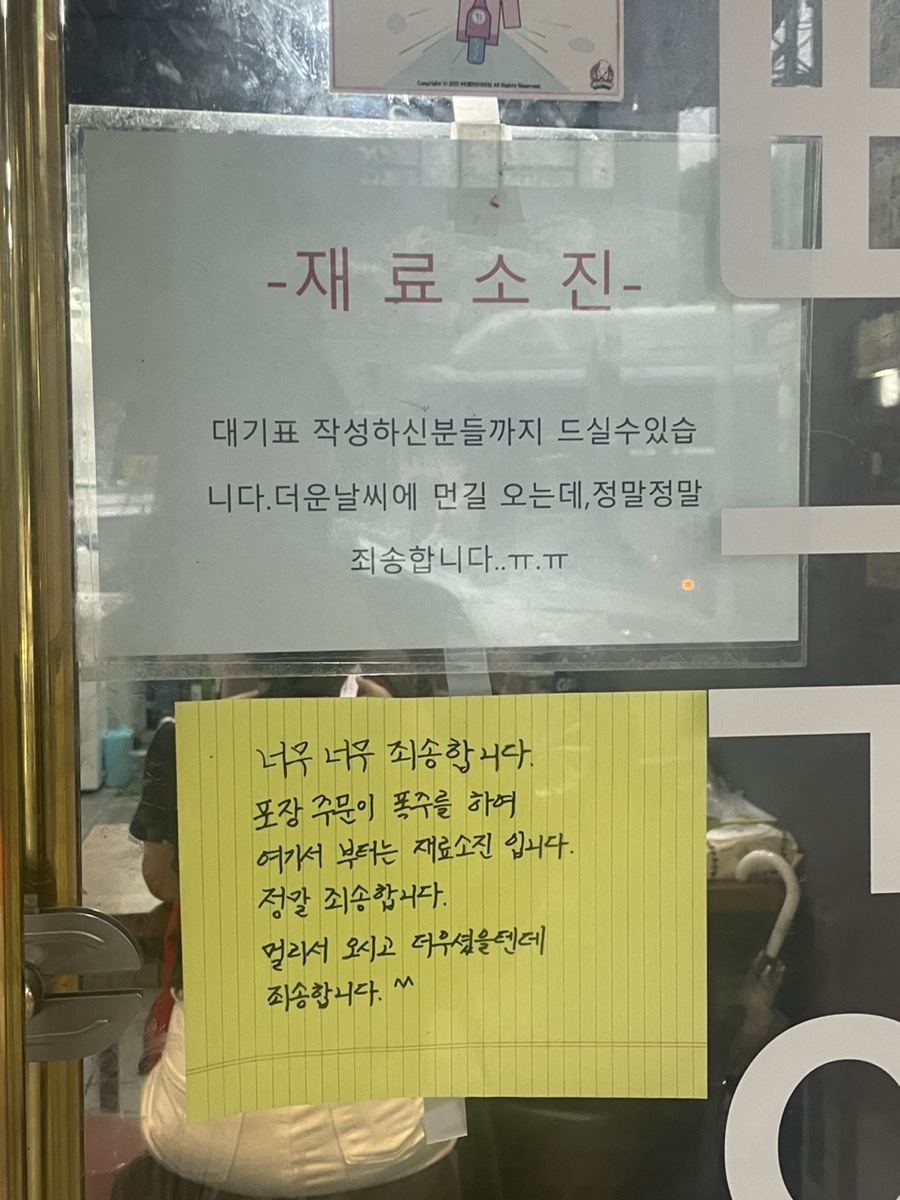 Copyright ⓒ 2025 All Rights Reserved.
-재 료 소 진-
대기표 작성하신분들까지 드실수있습
니다.더운날씨에 먼길 오는데,정말정말
죄송합니다..ㅠ.ㅠ
너무 너무 죄송합니다.
포장 주문이 폭주를 하여
여기서 부터는 재료소진 입니다.
정말 죄송합니다.
멀리서 오시고 더우셨을텐데
죄송합니다. ^^